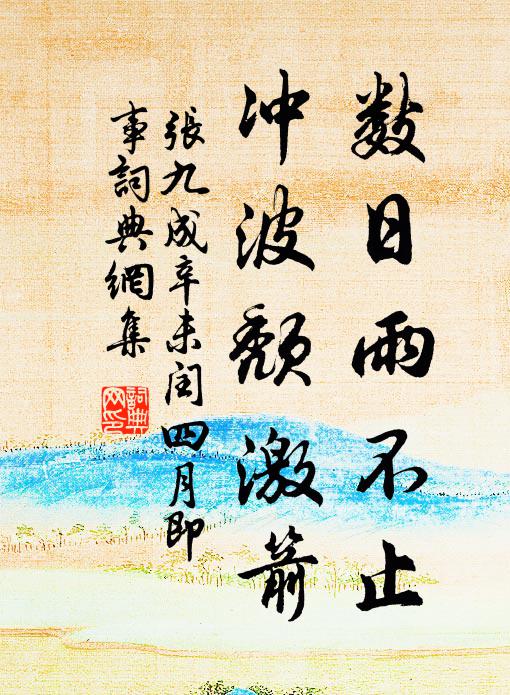 數日雨不止
冲波頹激箭
張九成辛未閏四月即
事詞典網集
詞典
网印